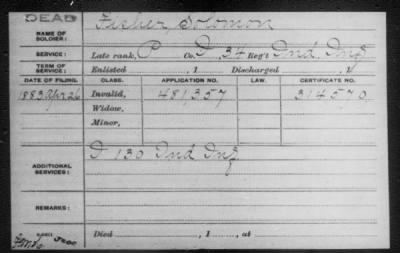 DEAD
NAME OF SOLDIER: Fisher, Solomon
SERVICE: Late rank, P Co. D, 34 Reg't Ind. Inf
TERM OF SERVICE: Enlisted , 1 Discharged , 1
DATE OF FILING. CLASS. APPLICATION NO. LAW. CERTIFICATE NO.
1883 Apr 26 Invalid, 481,357 314570
Widow,
Minor,
ADDITIONAL SERVICES: D 130 Ind Inf
REMARKS:
Died , 1 , at